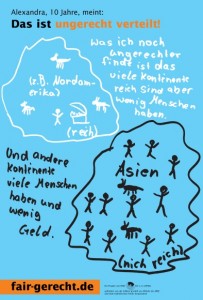 Alexandra, 10 Jahre, meint:
Das ist ungerecht verteilt!
Was ich noch
ungerechter
findt ist das
viele Kontinente
reich sind aber
wenig Menschen
haben.
(z.B. Nordam-
erika)
(reich)
Und andere
Kontinente
viele Menschen
haben und
wenig
Geld.
Asien
(nich reich)
fair-gerecht.de